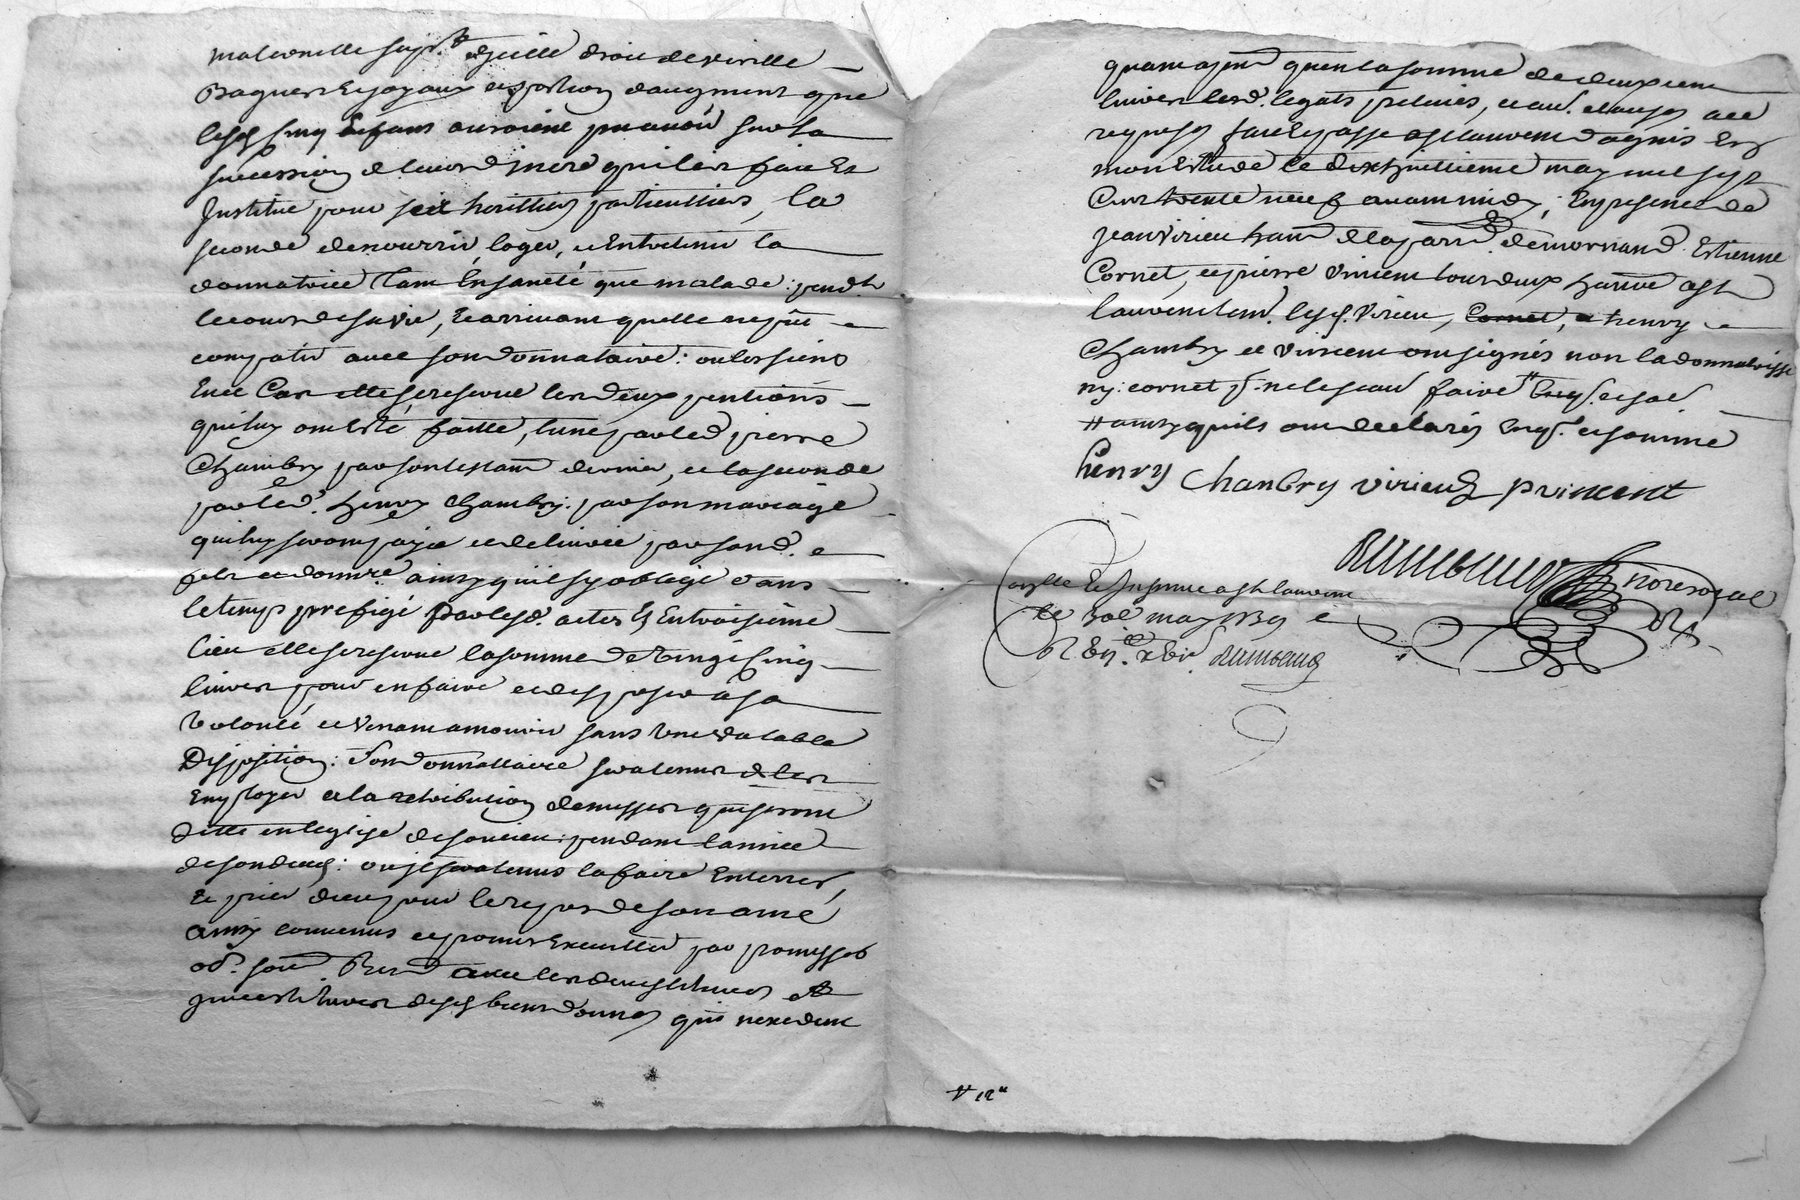 maternelle sup.t & icelle droit de virille
Bagues & joyaux et portion daugment que
lesd cinq Enfans auroient pu avoir sur sa
succession de laquelle qui les fait Et
Institue pour ses heritiers particulliers, la
seconde de nourrir, loger, et Entretenir la
donnatrice tant En santé que malade: pendt
le cours de sa vie, Et arrivant quelle ne put
compatir avec son donnataire: ou les siens
En ce Cas elle se reserve les deux pentions
qui luy ont Eté faitte, lune par led pierre
Chambry par son testam dernier, et la seconde
par led. henry Chambry: par son mariage
qui luy seront payé et delivrée par sond.
fils et donnre ainsy quil sy oblige dans
le temps prefigé par lesd. actes Et En troisieme
lieu elle se reserve la somme de vingt cinq
livres pour en faire et disposer a sa
volonté et venant a mourir sans une valable
Disposition: son donnattaire sera tenus de les
Employer a la retribution de messes qui seront
ditte en leglise de soucieu: pendant lannée
de son deuil: ou il sera tenus la faire Enterrer,
Et prier dieu pour le repos de son ame
ainsy convenus et promis Executter par promesses
ob.on soum Ren avec les devestitures et
investitures desd biens donnes qui nexedent
quant a pnt quen la somme de deux cent
livres lesd. legats precités, et aud. clauses
requises fait Et passé a st laurent dagnis En
mon Etude le dixhuitieme may mil sept
Cent trente neuf avant midy; En presence de
jean virieu habt de la parr de mornand Estienne
Cornet, et pierre vincent tous deux habt a st
laurent tem. lesd. virieu, Cornet, henry
Chambry et vincent ont signés non la donnatrisse
ny: cornet p. ne le scavoir faire # Enq. et som.
# ainsy quils ont declarés Enq. et sommé
henry Chanbry virieu p vincent
not royal
Conlle Et Insinué a st laurent
le 30e may 1739
V 12"